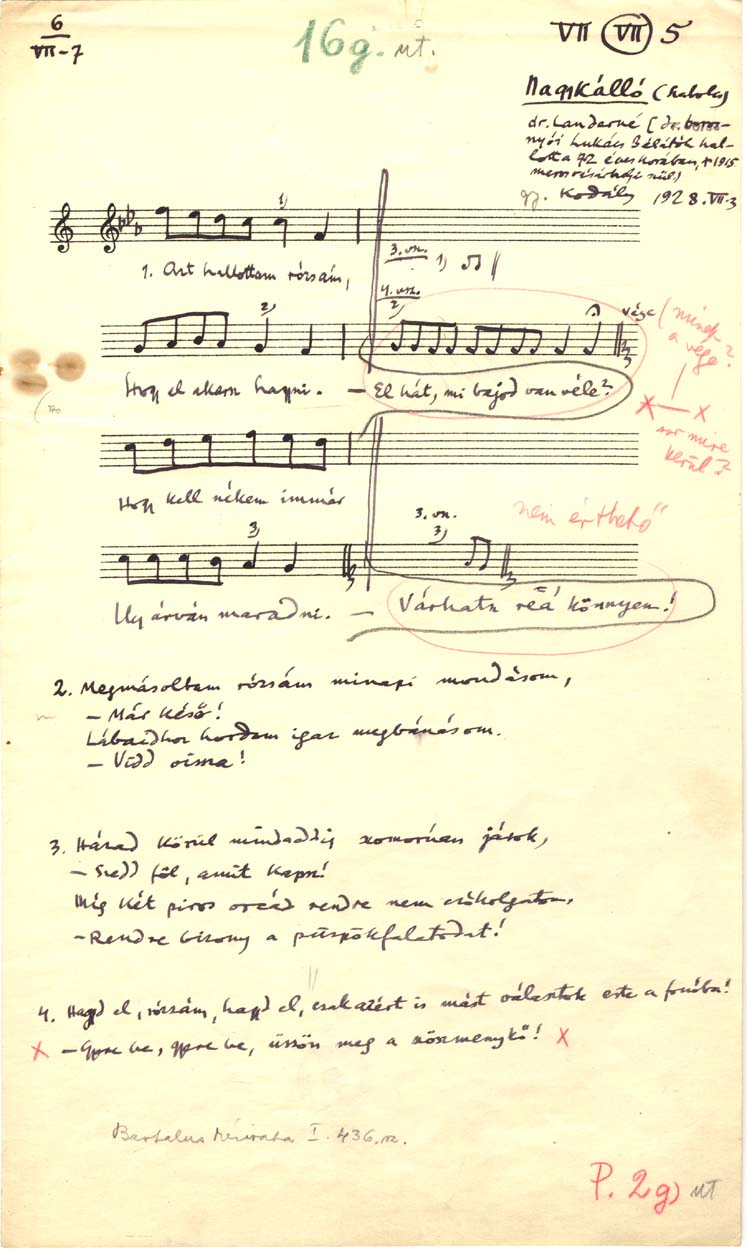 6
VII-7
16g. ut.
VII VII 5
Nagykálló (Szabolcs)
dr. Landerné [dr.
nyói Lukács Bélától hal-
lotta 92 éves korában, † 1915
gy. Kodály 1928.VII.3
1)
1. Azt hallottam rózsám,
3. vsz.
1)
4. vsz.
2)
2)
vége
Hogy el akarsz hagyni. — El hát, mi bajod van véle?
minek
a vége?
x — x
mire
kerül?
Hogy kell nékem immár
nem érthető"
3. vsz.
3)
3)
Ily árván maradni. — Várhatsz reá könnyen!
2. Megmásoltam rózsám minapi mondásom,
— Már késő!
Lábaidhoz hordom igaz megbánásom.
— Vidd vissza!
3. Házad körül mindaddig szomorúan járok,
— Szedd föl, amit kapsz!
Míg két piros orcád rendre nem csókolgatom.
— Rendre bizony a püspökfalatodat!
4. Hagyd el, rózsám, hagyd el, csak azért is mást választok este a fonóba!
x — Gyere be, gyere be, üssön meg a mennykő! x
Bartalus kézirata I. 436. sz.
P. 2g) ut